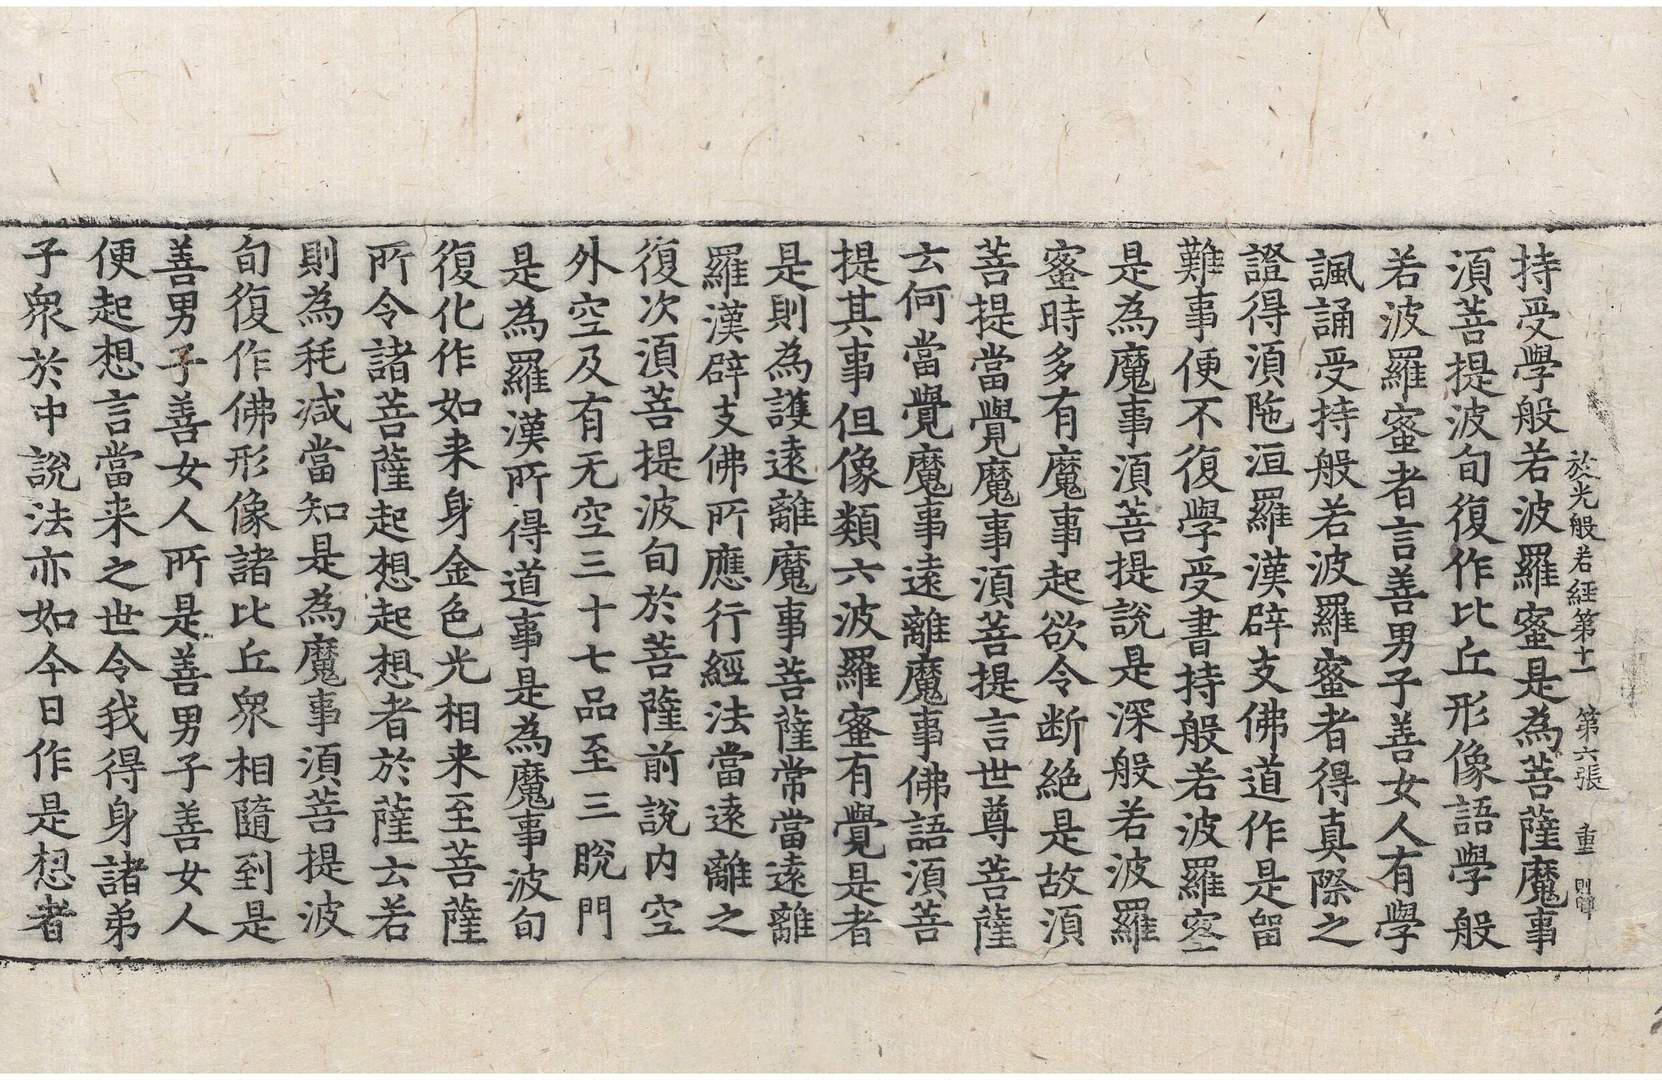 放光般若經第十一 第六張 重
持受學般若波羅蜜是為菩薩魔事
須菩提波旬復作比丘形像語學般
若波羅蜜者言善男子善女人有學
諷誦受持般若波羅蜜者得真際之
證得須陁洹羅漢辟支佛道作是留
難事便不復學受書持般若波羅蜜
是為魔事須菩提說是深般若波羅
蜜時多有魔事起欲令断絕是故須
菩提當覺魔事須菩提言世尊菩薩
云何當覺魔事遠離魔事佛語須菩
提其事但像類六波羅蜜有覺是者
是則為護遠離魔事菩薩常當遠離
羅漢辟支佛所應行經法當遠離之
復次須菩提波旬於菩薩前說内空
外空及有无空三十七品至三脫門
是為羅漢所得道事是為魔事波旬
復化作如来身金色光相来至菩薩
所令諸菩薩起想起想者於薩云若
則為秏减當知是為魔事須菩提波
旬復作佛形像諸比丘眾相隨到是
善男子善女人所是善男子善女人
便起想言當来之世令我得身諸弟
子眾於中說法亦如今日作是想者